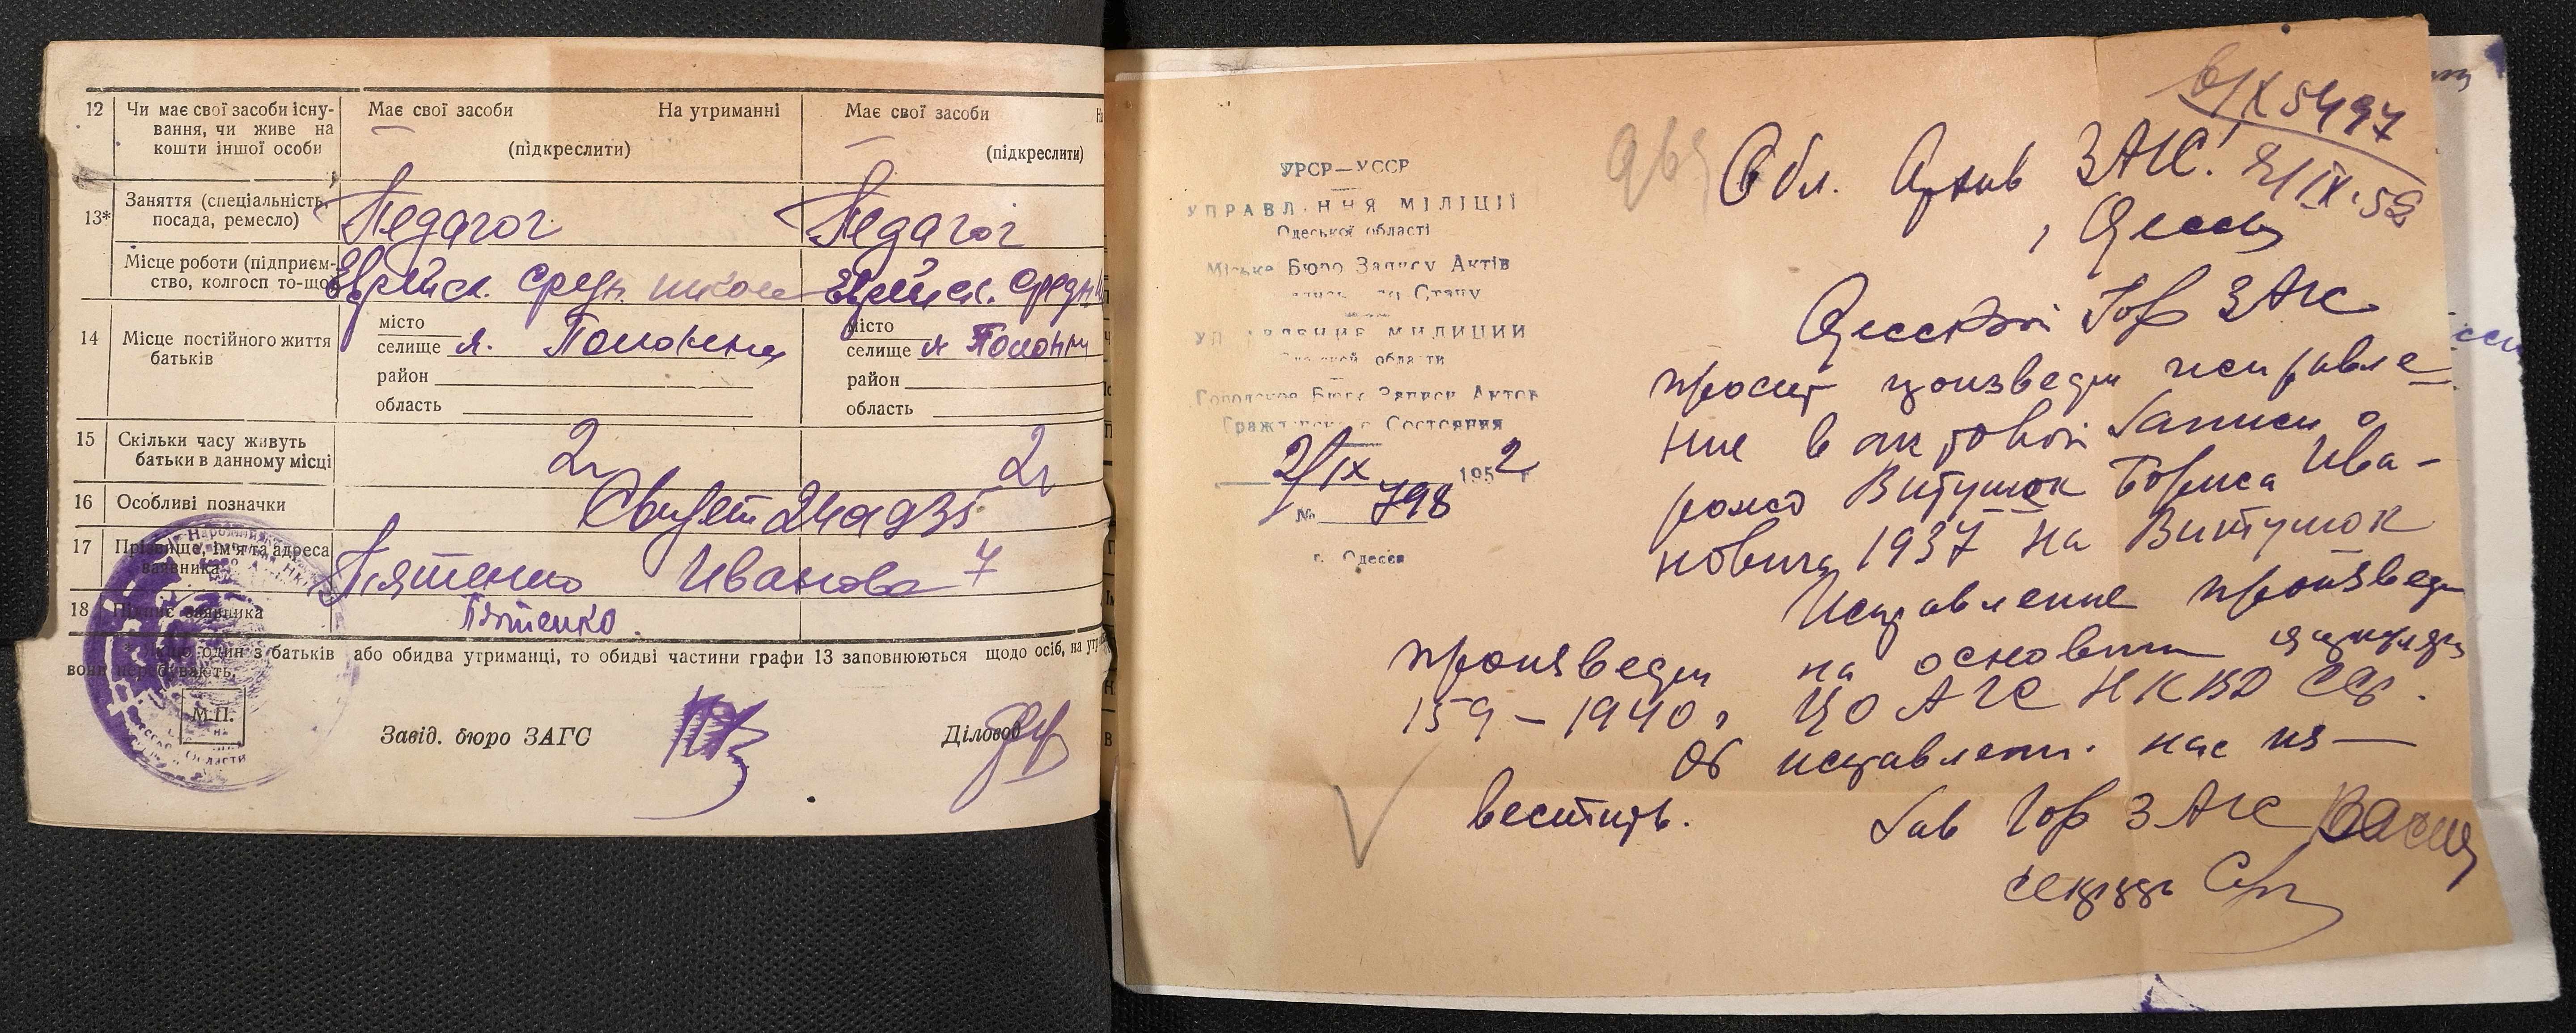 12 Чи має свої засоби існу-
вання, чи живе на
кошти іншої особи
Має свої засоби На утриманні
(підкреслити)
Має свої засоби
(підкреслити)
13* Заняття (спеціальність,
посада, ремесло)
Педагог Педагог
Місце роботи (підприєм-
ство, колгосп то-що
Еврейск. средн. школе Еврейск. средн
14 Місце постійного життя
батьків
місто
селище
район
область
місто
селище
район
область
15 Скільки часу живуть
батьки в данному місці
2 2
16 Особливі позначки
17 Прізвище, ім'я та адреса
заявника
Пятенко Иванова 7
18 Підпис заявника
Пятенко.
Якщо один з батьків або обидва утриманці, то обидві частини графи 13 заповнюються щодо осіб, на
вони перебувають.
М.П.
Завід. бюро ЗАГС
Діловод
УРСР—УССР
УПРАВЛІННЯ МІЛІЦІЇ
Одеської області
Міське Бюро Запису Актів
Стану
УПРАВЛЕНИЕ МИЛИЦИИ
области
Городское Бюро Записи Актов
Гражданского Состояния
2/IX 1952 г
№ 798
г. Одесса
6/IX 5497
Обл. Архив ЗАГС!
г Одесса
Одесский Гор ЗАГС
просит произвести исправле-
ние в актовой записи о
рожд Витушок Бориса Ива-
новича 1937 на Витушок
Исправление произвед
произвести на основан циркуляр
159 – 1940 г ЦОАГС НКВД СССР.
Об исправлени. нас из-
вестить.
Зав Гор ЗАГС